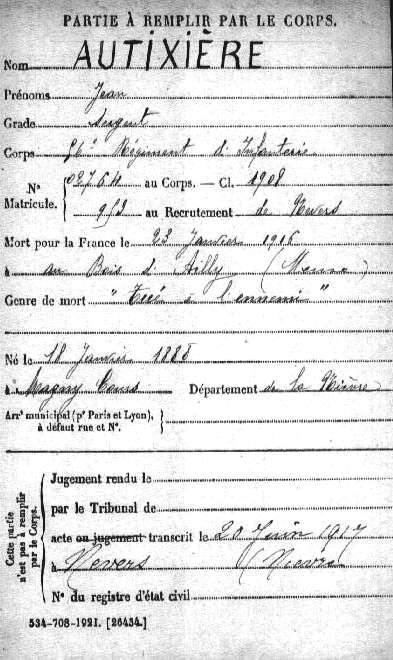 PARTIE À REMPLIR PAR LE CORPS.
Nom AUTIXIÈRE
Prénoms Jean
Grade Sergent
Corps 56e Régiment d'Infanterie
Nos Matricule. { 02764 au Corps. — Cl. 1908
au Recrutement de Nevers
Mort pour la France le 23 Janvier 1916
à au Bois d'Ailly (Meuse)
Genre de mort "Tué à l'ennemi"
Né le 18 Janvier 1888
à Magny Cours Département de la Nièvre
Arrt municipal (pr Paris et Lyon), à défaut rue et No. }
Cette partie n'est pas à remplir par le Corps. {
Jugement rendu le
par le Tribunal de
acte ou jugement transcrit le 20 Juin 1917
à Nevers (Nièvre)
No du registre d'état civil
534-708-1921. [26434.]